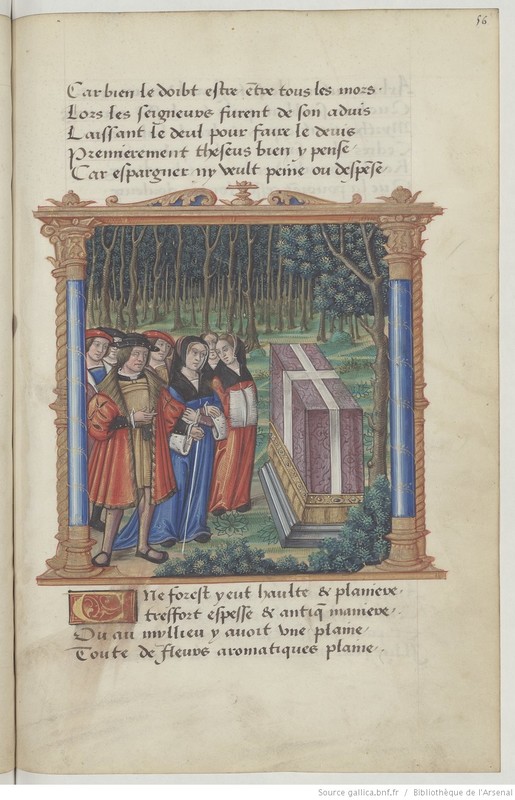 56
Car bien le doibt estre ētre tous les mors.
Lors les seigneurs furent de son aduis
Laissant le deul pour faire le deuis
Premierement theseus bien y pense
Car espargner ny veult peine ou despēse.
Une forest y eut haulte & planiere
tresfort espesse & antiq̄ maniere.
Ou au myllieu y auoit vne plame
Toute de fleurs aromatiques plame.
Source gallica.bnf.fr / Bibliothèque de l'Arsenal